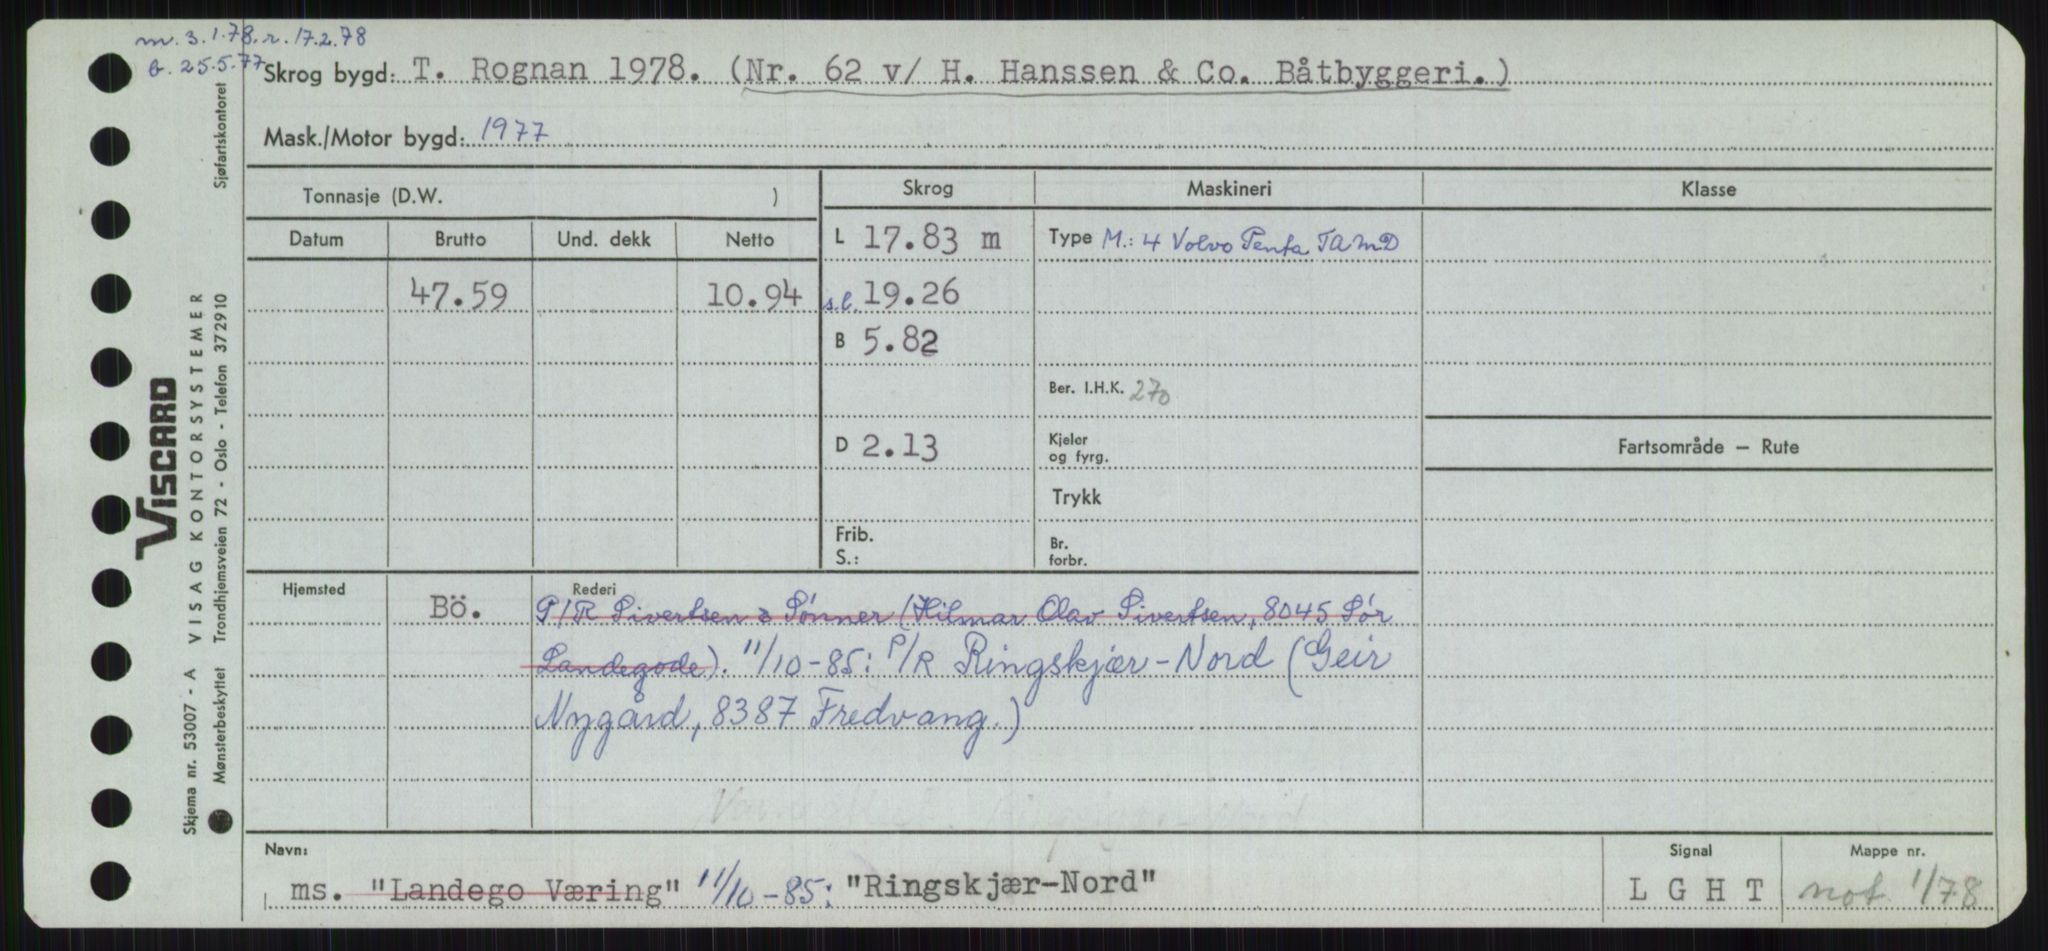 m. 3.1.78. r. 17.2.78
b. 25.5.77
Skrog bygd: T. Rognan 1978. (Nr. 62 v/ H. Hanssen & Co. Båtbyggeri.)
Mask./Motor bygd: 1977
Tonnasje (D.W. )
Skrog
Maskineri
Klasse
Datum Brutto Und. dekk Netto
L 17.83 m
Type M.: 4 Volvo Penta TAMD
47.59 10.94
s.l. 19.26
B 5.82
Ber. I.H.K. 270
D 2.13
Kjeler
og fyrg.
Fartsområde – Rute
Trykk
Frib.
S.:
Br.
forbr.
Hjemsted
Bö.
Rederi
P/R Sivertsen & Sønner (Hilmar Olav Sivertsen, 8045 Sør
Landegode). 11/10-85: P/R Ringskjær-Nord (Geir
Nygård, 8387 Fredvang.)
Navn:
ms. "Landego Væring" 11/10-85: "Ringskjær-Nord"
Signal
L G H T
Mappe nr.
not 1/78
Skjema nr. 53007 - A VISAG KONTORSYSTEMER
VISCARD
Mønsterbeskyttet Trondhjemsveien 72 - Oslo - Telefon 372910
Sjøfartskontoret